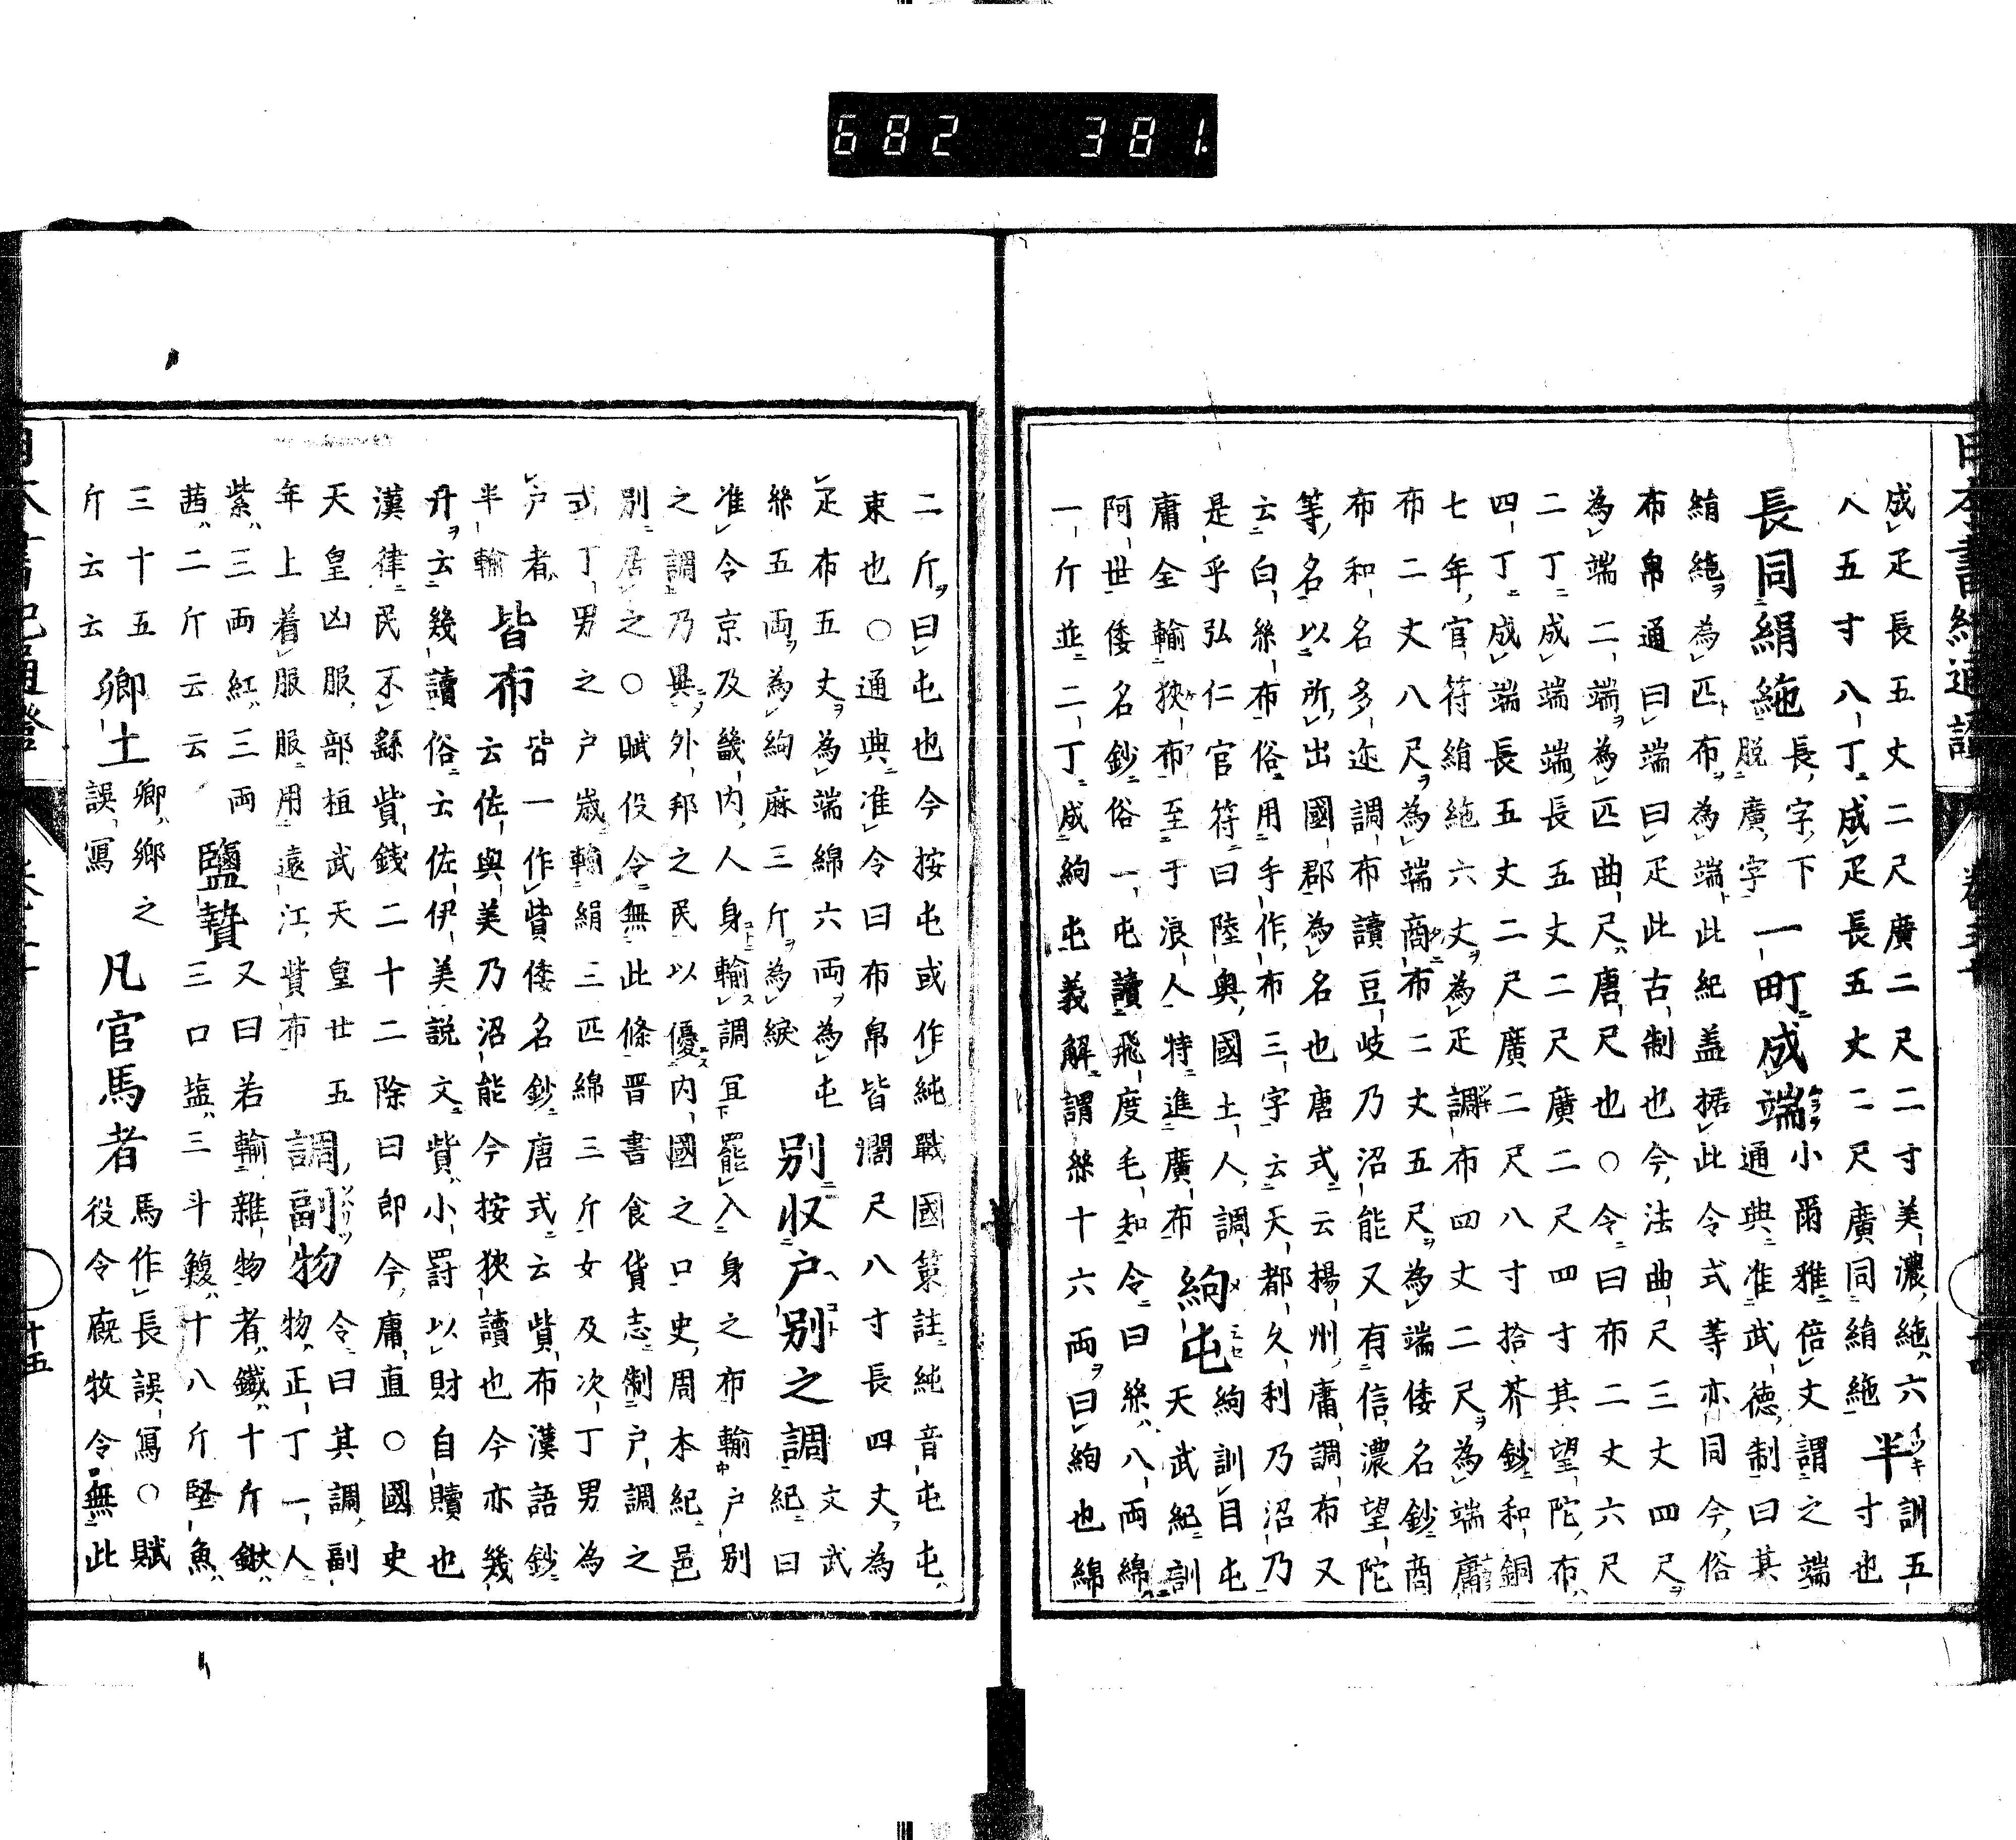 682 381.
成疋長五丈二尺廣二尺二寸美濃絁六半訓五
八五寸八丁成疋長五丈二尺廣同絹絁寸也
長同絹絁長字下脱廣字一町成端小爾雅倍丈謂之端通典准武徳制曰其
絹絁為匹布為端此紀盖據此令式等亦同今俗
布帛通曰端曰疋此古制也今法曲尺三丈四尺
為端二端為匹曲尺唐尺也○令曰布二丈六尺
二丁成端端長五丈二尺廣二尺四寸其望陀布
四丁成端長五丈二尺廣二尺八寸拾芥鈔和銅
七年官符絹絁六丈為疋調布四丈二尺為端庸
布二丈八尺為端商布二丈五尺為端倭名鈔商
布和名多迩調布讀豆岐乃沼能又有信濃望陀
等名以所出國郡為名也唐式云揚州庸調布又
云白絲布俗用手作布三字云天都久利乃沼乃
是乎弘仁官符曰陸奥國土人調絢屯絢訓目屯
庸全輸狭布至于浪人特進廣布天武紀訓
阿世倭名鈔俗一屯讀飛度毛知令曰絲八両綿
一斤並二丁成絢屯義解謂絲十六両曰絢也綿
二斤曰屯也今按屯或作純戰國策註純音屯屯
束也○通典准令曰布帛皆濶尺八寸長四丈為
疋布五丈為端綿六両為屯別収戸別之調文武
絲五両為絢麻三斤為綟紀曰
准令京及畿内人身輸調冝罷入身之布輸戸別
之調乃異外邦之民以優内國之口史周本紀邑
別居之○賦役令無此條晋書食貨志制戸調之
式丁男之戸歳輸絹三匹綿三斤女及次丁男為
戸者皆一作貲倭名鈔唐式云貲布漢語鈔
半輸皆布云佐與美乃沼能今按狭讀也今亦幾
升云幾讀俗云佐伊美説文貲小罸以財自贖也
漢律民不繇貲錢二十二除曰即今庸直○國史
天皇凶服部桓武天皇廿五調副物令曰其調副
年上着服服用遠江貲布物正丁一人
紫三両紅三両鹽贄又曰若輸雜物者鐵十斤鍬
茜二斤云云三口塩三斗鰒十八斤堅魚
三十五卿土卿郷之凡官馬者馬作長誤寫○賦
斤云云誤寫役令廐牧令無此
十五